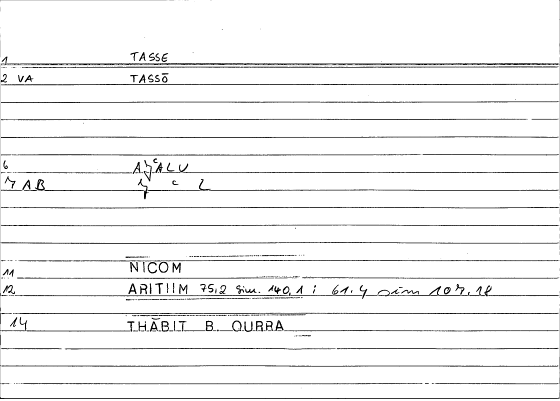 1 TASSE
2 VA TASSŌ
6 AǦʿALU
7 AB Ǧ ʿ L
11 NICOM
12 ARITIIM 75,2 sim. 140,1; 61.4 sim 107.18
14 THĀBIT B. QURRA